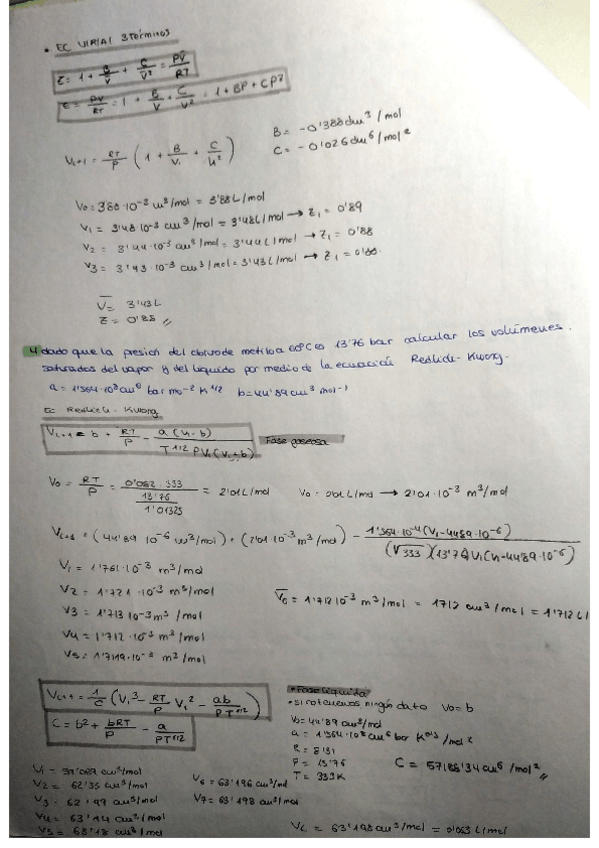 • EC VIRIAL 3 términos
Z = 1 + B/V + C/V² = PV̄/RT
Z = PV/RT = 1 + B/V + C/V² = 1 + BP + CP²
Vi+1 = RT/P (1 + B/Vi + C/Vi²)
B = -0'388 dm³/mol
C = -0'026 dm⁶/mol²
V0 = 3'88·10⁻³ m³/mol = 3'88 L/mol
V1 = 3'48·10⁻³ cm³/mol = 3'48 L/mol → Z1 = 0'89
V2 = 3'44·10⁻³ cm³/mol = 3'44 L/mol → Z1 = 0'88
V3 = 3'43·10⁻³ cm³/mol = 3'43 L/mol → Z1 = 0'88.
V̄ = 3'43 L
Z = 0'88 //
4 dado que la presion del cloruro de metilo a 60ºC es 13'76 bar calcular los volúmenes.
saturados del vapor y del liquido por medio de la ecuación Redlich-Kwong.
a = 1'564·10⁸ cm⁶ bar mo⁻² K^1/2 b = 44'89 cm³ mol⁻¹
Ec Redlich-Kwong
Vi+1 = b + RT/P - a(Vi-b)/T^1/2 PVi(Vi+b)
Fase gaseosa
V0 = RT/P = 0'082·333 / (13'76/1'01325) = 2'01 L/mol V0 = 2'01 L/mol → 2'01·10⁻³ m³/mol
Vi+1 = (44'89 10⁻⁶ m³/mol) + (2'01·10⁻³ m³/mol) - 1'564·10⁻⁴(Vi-44'89·10⁻⁶) / (√333)(13'76)Vi(Vi-44'89·10⁻⁶)
V1 = 1'761·10⁻³ m³/mol
V2 = 1'721·10⁻³ m³/mol
V3 = 1'713·10⁻³ m³/mol
V4 = 1'712·10⁻³ m³/mol
V5 = 1'7119·10⁻³ m³/mol
V̄G = 1'712 10⁻³ m³/mol = 1712 cm³/mol = 1'712 L/
Vi+1 = 1/C (Vi³ - RT/P Vi² - ab/PT^1/2)
C = b² + bRT/P - a/PT^1/2
• Fase liquida
• si no tenemos ningún dato V0 = b
V0 = 44'89 cm³/mol
a = 1'564·10⁸ cm⁶ bar K^0'5/mol²
R = 8'31
P = 13'76
T = 333 K
C = 57186'34 cm⁶/mol² //
V2 = 62'35 cm³/mol
V3 = 62'99 cm³/mol
V4 = 63'14 cm³/mol
V5 = 63'18 cm³/mol
V6 = 63'196 cm³/ml
V7 = 63'198 cm³/mol
VL = 63'198 cm³/mol = 0'063 L/mol